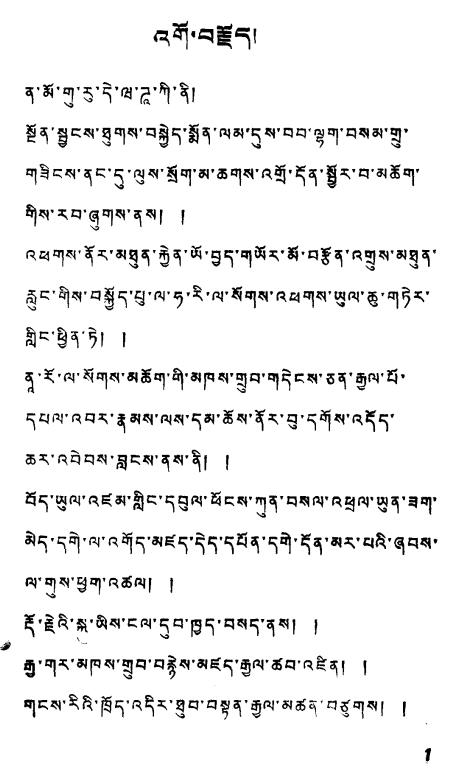 འགོ་བརྗོད།
ན་མོ་གུ་རུ་དེ་ཝ་ཌཱ་ཀི་ནི།
སྔོན་སྦྱངས་ཐུགས་བསྐྱེད་སྨོན་ལམ་དུས་བབ་ལྷག་བསམ་གྲུ་
གཟིངས་ནང་དུ་ལུས་སྲོག་མ་ཆགས་འགྲོ་དོན་སྦྱོར་བ་མཆོག་
གིས་རབ་ཞུགས་ནས། །
འཕགས་ནོར་མཐུན་རྐྱེན་ཡོ་བྱད་གཡོར་མོ་བརྩོན་འགྲུས་མཐུན་
རླུང་གིས་བསྐྱོད་པུ་ལ་ཧ་རི་ལ་སོགས་འཕགས་ཡུལ་ཆུ་གཏེར་
གླིང་ཕྱིན་ཏེ། །
ནཱ་རོ་ལ་སོགས་མཆོག་གི་མཁས་གྲུབ་གདེངས་ཅན་རྒྱལ་པོ་
དཔལ་འབར་རྣམས་ལས་དམ་ཆོས་ནོར་བུ་དགོས་འདོད་
ཆར་འབེབས་བླངས་ནས་ནི། །
བོད་ཡུལ་འཛམ་གླིང་དབུལ་ཕོངས་ཀུན་བསལ་འཕྲལ་ཡུན་ཟག་
མེད་དགེ་ལ་འགོད་མཛད་དེད་དཔོན་དགེ་དོན་མར་པའི་ཞབས་
ལ་གུས་ཕྱག་འཚལ། །
རྡོ་རྗེའི་སྐུ་ཡིས་ངལ་དུབ་ཁྱད་བསད་ནས། །
རྒྱ་གར་མཁས་གྲུབ་བརྙེས་མཛད་རྒྱལ་ཚབ་འཛིན། །
གངས་རིའི་ཁྲོད་འདིར་ཐུབ་བསྟན་རྒྱལ་མཚན་བཙུགས། །
1